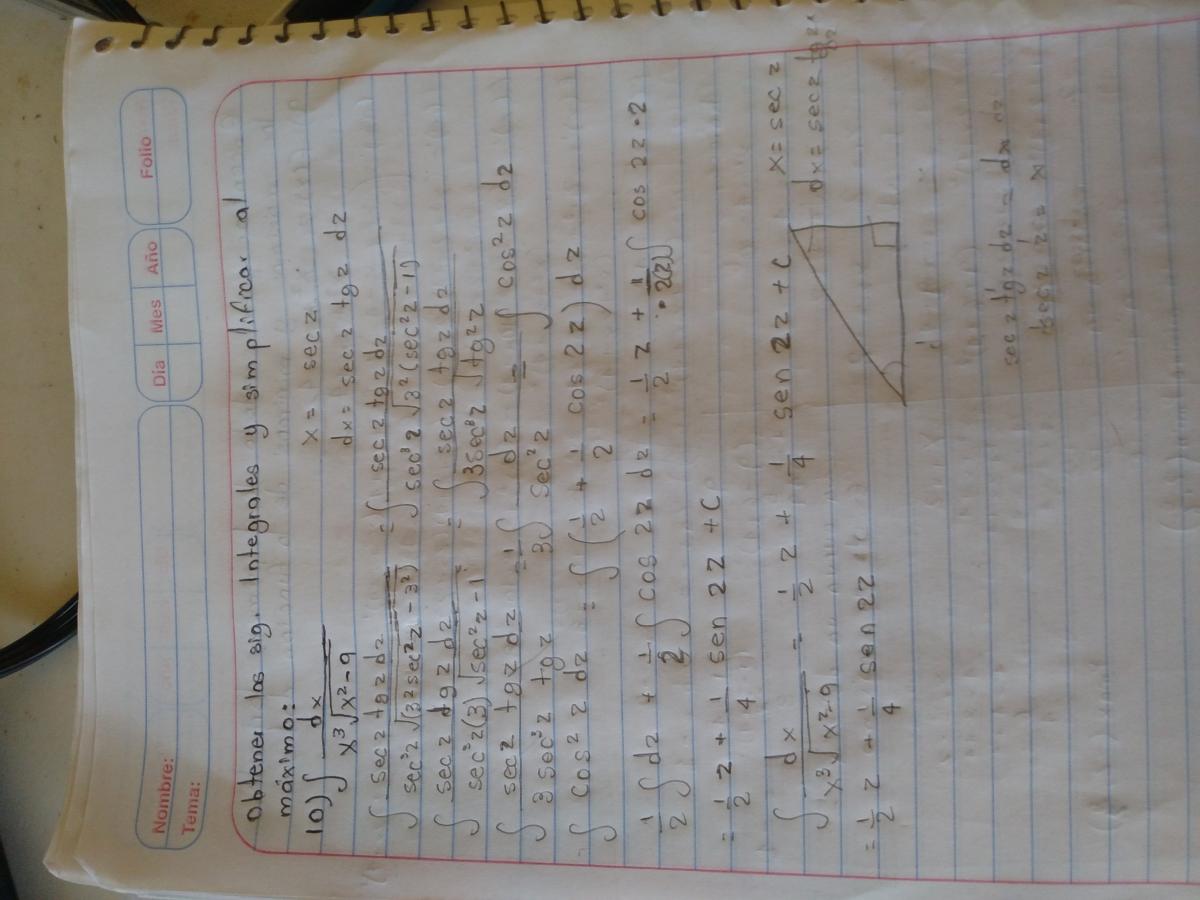 Dia Mes Año Folio
Nombre:
Tema:
Obtener las sig. Integrales y simplificar al
máximo:
10) ∫ dx / x³√x²-9 x = sec z
dx = sec z tgz dz
∫ sec z tgz dz / sec³z √(3² sec²z - 3²) = ∫ sec z tgz dz / sec³z √3²(sec²z - 1)
∫ sec z tgz dz / sec³z(3) √sec²z - 1 = ∫ sec z tgz dz / 3 sec³z √tg²z
∫ sec z tgz dz / 3 sec³z tgz = 1/3 ∫ dz / sec²z = ∫ cos²z dz
= ∫ cos²z dz = ∫ (1/2 + 1/2 cos 2z) dz
1/2 ∫ dz + 1/2 ∫ cos 2z dz = 1/2 z + 1/2(2) ∫ cos 2z · 2
= 1/2 z + 1/4 sen 2z + C
∫ dx / x³√x²-9 = 1/2 z + 1/4 sen 2z + C x = sec z
dx = sec z tgz
= 1/2 z + 1/4 sen 2z
sec z tgz dz = dx